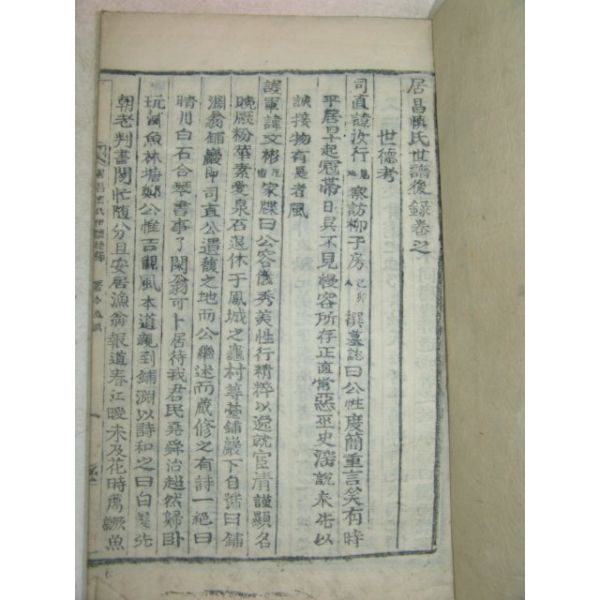 居昌愼氏世譜後錄卷之
世德考
司直諱汝行 察訪柳子房 撰墓誌曰公性度簡重言笑有時
平居早起冠帶日具不見慢容所存正直當惡巫史 說未告以
誠接物有長者風
護軍諱文彬 家牒曰公容儀秀美性行精粹以逸就宦淸謹顯名
晩厭粉華素愛泉石退休于鳳城之龜村 鋪巖下自號曰鋪
淵翁鋪巖卽司直公遺馥之地而公繼述而藏修之有詩一絕曰
晴川白石合琴書事了閑翁可卜居待我君民堯舜治超然歸臥
玩淵魚林塘鄭公惟吉觀風本道親到鋪淵以詩和之曰白髮先
朝老判書閑忙隨分且安居漁翁報道春江暖未及花時薦鱖魚